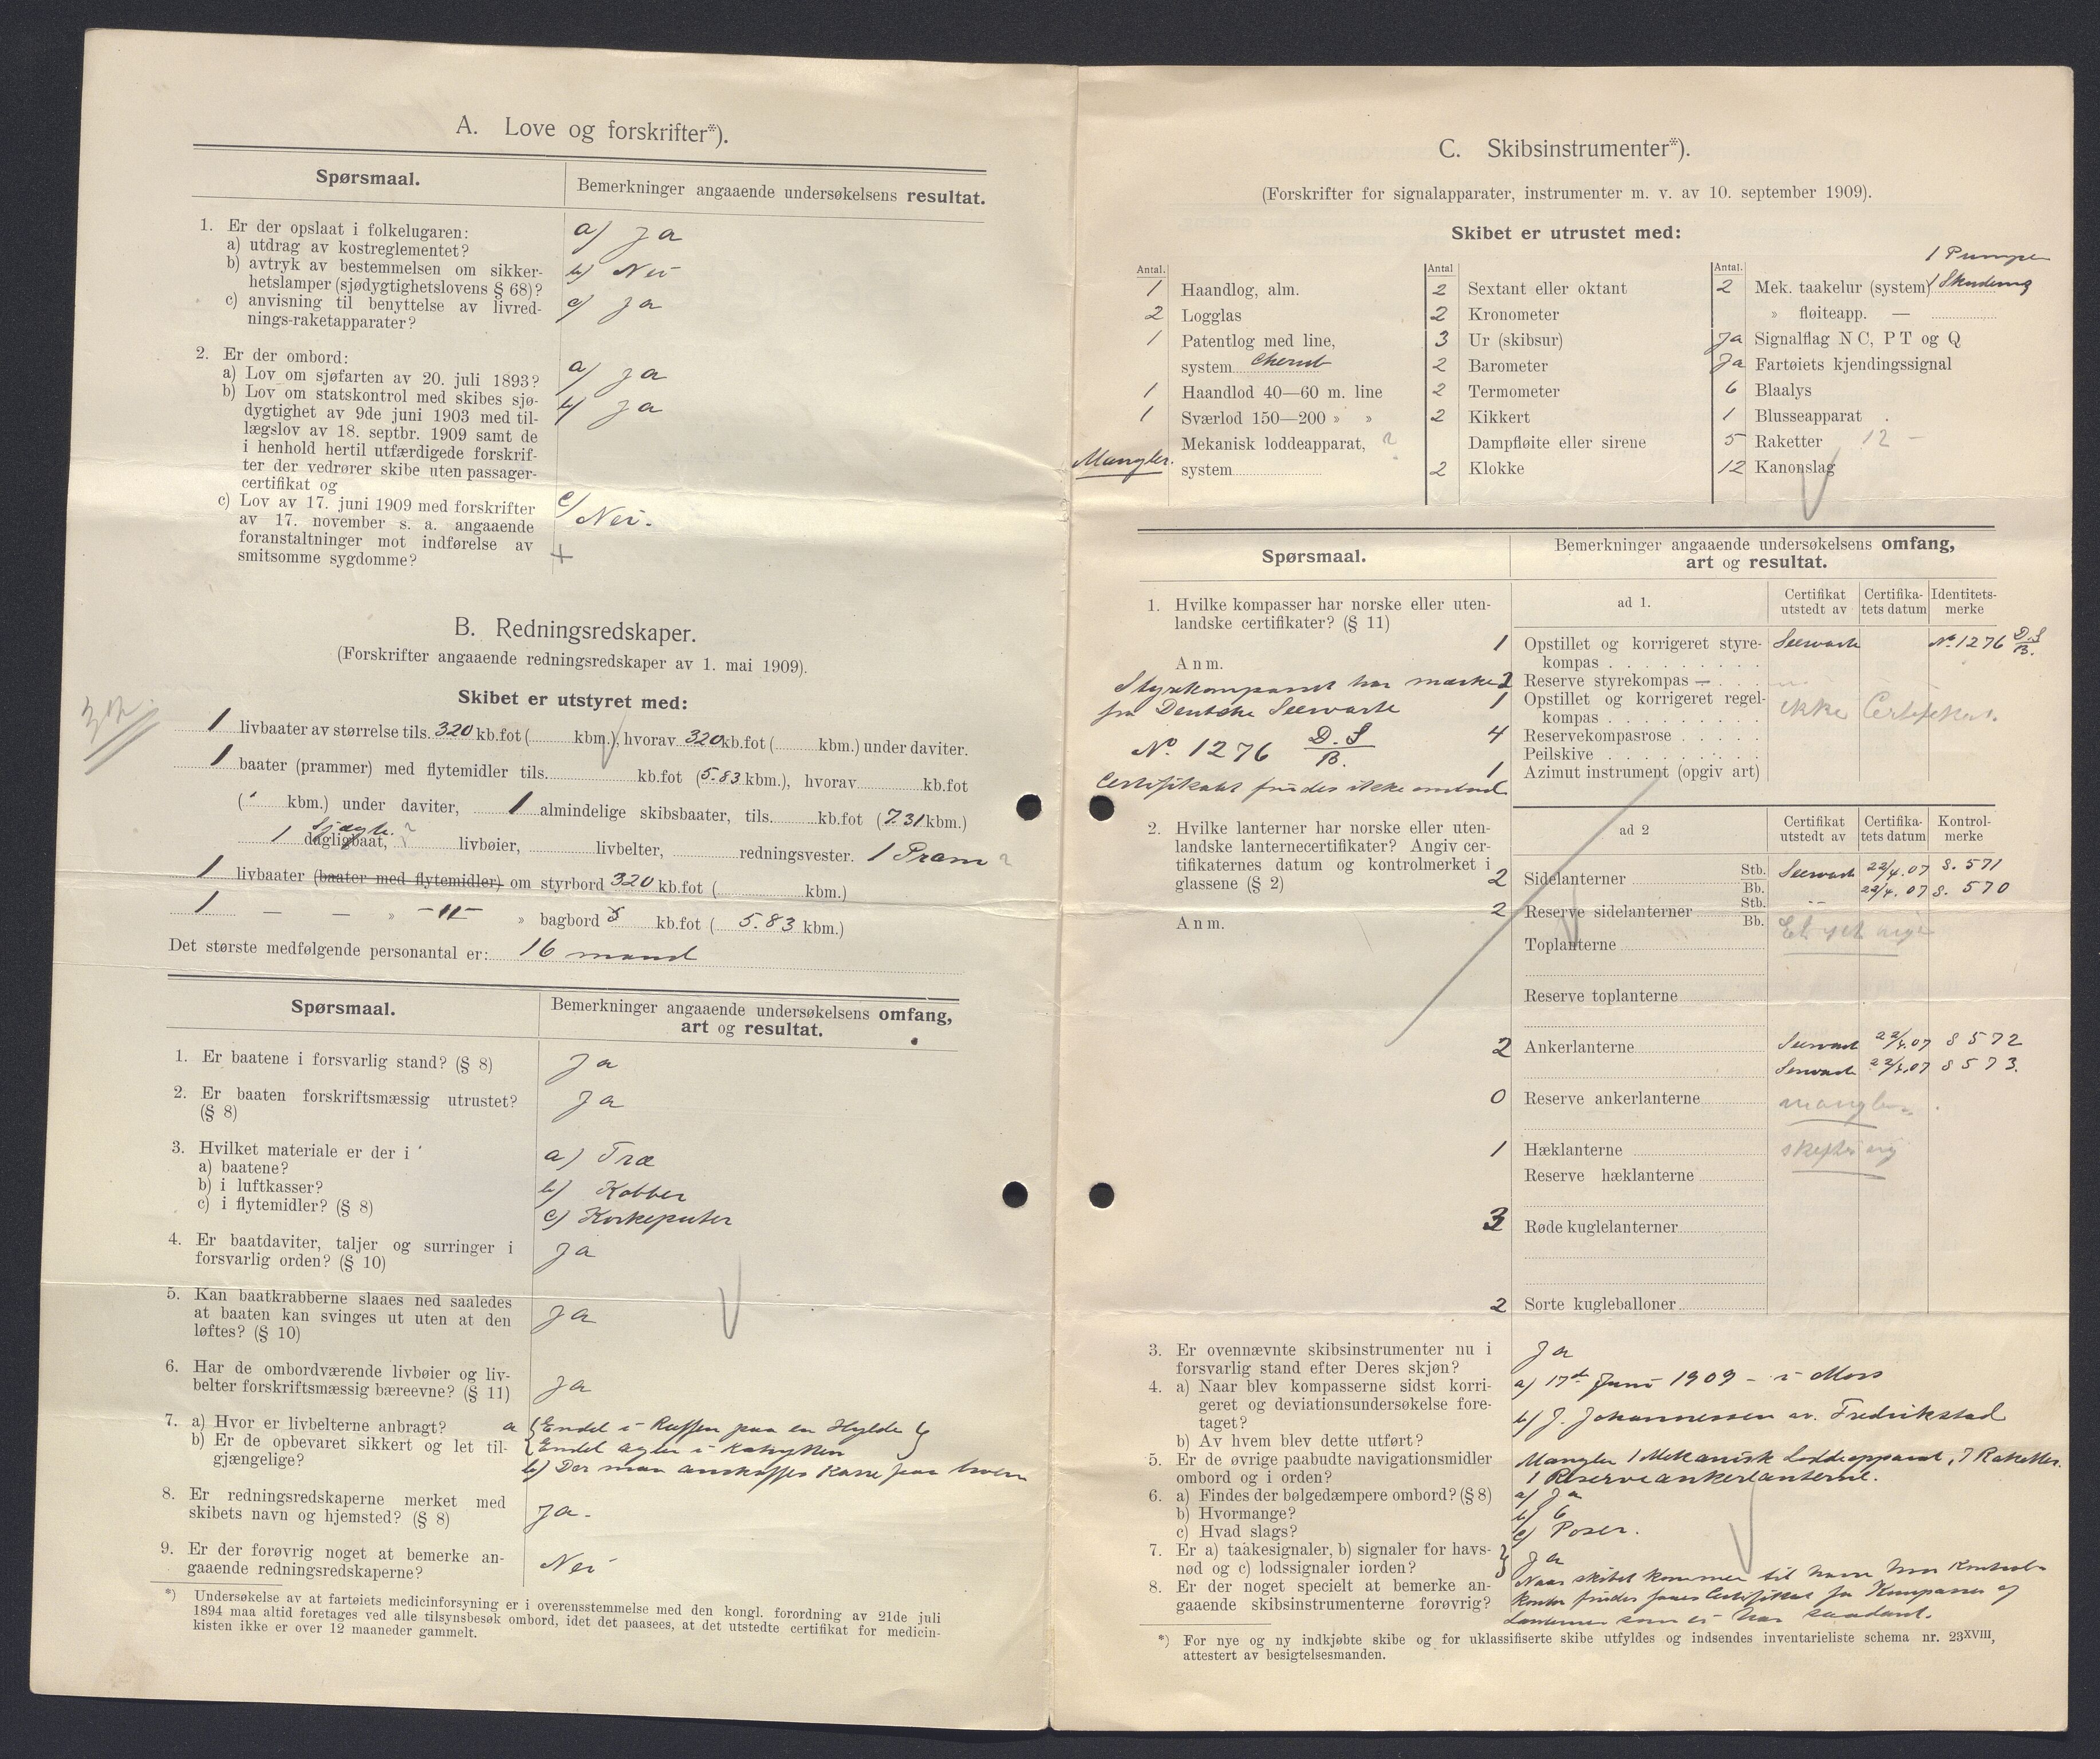 A. Love og forskrifter*).
Spørsmaal.
Bemerkninger angaaende undersøkelsens resultat.
1. Er der opslaat i folkelugaren:
a) utdrag av kostreglementet?
a) Ja
b) avtryk av bestemmelsen om sikker-
hetslamper (sjødygtighetslovens § 68)?
b) Nei
c) anvisning til benyttelse av livred-
nings-raketapparater?
c) Ja
2. Er der ombord:
a) Lov om sjøfarten av 20. juli 1893?
a) Ja
b) Lov om statskontrol med skibes sjø-
dygtighet av 9de juni 1903 med til-
lægslov av 18. septbr. 1909 samt de
i henhold hertil utfærdigede forskrif-
ter der vedrører skibe uten passager-
certifikat og
b) Ja
c) Lov av 17. juni 1909 med forskrifter
av 17. november s. a. angaaende
foranstaltninger mot indførelse av
smitsomme sygdomme?
c) Nei.
+
B. Redningsredskaper.
(Forskrifter angaaende redningsredskaper av 1. mai 1909).
Skibet er utstyret med:
1 livbaater av størrelse tils. 320 kb.fot ( kbm.), hvorav 320 kb.fot ( kbm.) under daviter.
1 baater (prammer) med flytemidler tils. kb.fot (5.83 kbm.), hvorav kb.fot
( kbm.) under daviter, 1 almindelige skibsbaater, tils. kb.fot (7.31 kbm.)
1 dagligbaat, ? livbøier, livbelter, redningsvester. 1 Pram ?
1 livbaater (baater med flytemidler) om styrbord 320 kb.fot ( kbm.)
1 — — » -"- » bagbord kb.fot ( 5.83 kbm.)
Det største medfølgende personantal er: 16 mand
Spørsmaal.
Bemerkninger angaaende undersøkelsens omfang,
art og resultat.
1. Er baatene i forsvarlig stand? (§ 8)
Ja
2. Er baaten forskriftsmæssig utrustet?
(§ 8)
Ja
3. Hvilket materiale er der i
a) baatene?
a) Træ
b) i luftkasser?
b) Kobber
c) i flytemidler? (§ 8)
c) Korkeputer
4. Er baatdaviter, taljer og surringer i
forsvarlig orden? (§ 10)
Ja
5. Kan baatkrabberne slaaes ned saaledes
at baaten kan svinges ut uten at den
løftes? (§ 10)
Ja
6. Har de ombordværende livbøier og liv-
belter forskriftsmæssig bæreevne? (§ 11)
Ja
7. a) Hvor er livbelterne anbragt?
a Endel i Ruffen paa en Hylde &
Endel agter i Kahytten
b) Er de opbevaret sikkert og let til-
gjængelige?
b) Der maa anskaffes Kasse paa
8. Er redningsredskaperne merket med
skibets navn og hjemsted? (§ 8)
Ja.
9. Er der forøvrig noget at bemerke an-
gaaende redningsredskaperne?
Nei
*) Undersøkelse av at fartøiets medicinforsyning er i overensstemmelse med den kongl. forordning av 21de juli
1894 maa altid foretages ved alle tilsynsbesøk ombord, idet det paasees, at det utstedte certifikat for medicin-
kisten ikke er over 12 maaneder gammelt.
C. Skibsinstrumenter*).
(Forskrifter for signalapparater, instrumenter m. v. av 10. september 1909).
Skibet er utrustet med:
1 Pumpe
Antal.
1 Haandlog, alm.
2 Logglas
1 Patentlog med line,
system Cherub
1 Haandlod 40—60 m. line
1 Sværlod 150—200 » »
Mekanisk loddeapparat, ?
Mangler. system
Antal
2 Sextant eller oktant
2 Kronometer
3 Ur (skibsur)
2 Barometer
2 Termometer
2 Kikkert
Dampfløite eller sirene
2 Klokke
Antal.
2 Mek. taakelur (system)
» fløiteapp. —
Ja Signalflag N C, P T og Q
Ja Fartøiets kjendingssignal
6 Blaalys
1 Blusseapparat
5 Raketter 12 -
12 Kanonslag
Spørsmaal.
Bemerkninger angaaende undersøkelsens omfang,
art og resultat.
1. Hvilke kompasser har norske eller uten-
landske certifikater? (§ 11)
Anm.
Styrekompasset har mærke
fra Deutsche Seewarte
No. 1276 D.S/B.
Certifikatet findes ikke ombord
ad 1.
Certifikat
utstedt av
Certifika-
tets datum
Identitets-
merke
1 Opstillet og korrigeret styre-
kompas Seewarte No. 1276 D.S/B.
Reserve styrekompas —
1 Opstillet og korrigeret regel-
kompas ikke Certifikat.
4 Reservekompasrose
Peilskive
1 Azimut instrument (opgiv art)
2. Hvilke lanterner har norske eller uten-
landske lanternecertifikater? Angiv cer-
tifikaternes datum og kontrolmerket i
glassene (§ 2)
Anm.
ad 2
Certifikat
utstedt av
Certifika-
tets datum
Kontrol-
merke
2 Sidelanterner Stb. Seewart 22/4.07 S. 571
Bb. 22/4.07 S. 570
2 Reserve sidelanterner Stb.
Bb.
Toplanterne
Reserve toplanterne
2 Ankerlanterne Seewart 22/4.07 S 572
Seewart 22/4.07 S 573.
0 Reserve ankerlanterne mangler.
1 Hæklanterne
Reserve hæklanterne
3 Røde kuglelanterner
2 Sorte kugleballoner
3. Er ovennævnte skibsinstrumenter nu i
forsvarlig stand efter Deres skjøn?
Ja
4. a) Naar blev kompasserne sidst korri-
geret og deviationsundersøkelse fore-
taget?
a) 17de Juni 1909 - i Moss
b) Av hvem blev dette utført?
b) J. Johannessen av. Fredrikstad
5. Er de øvrige paabudte navigationsmidler
ombord og i orden?
Mangler 1 Mekanisk Loddeapparat, 7 Raketter.
1 Reserveankerlanterne.
6. a) Findes der bølgedæmpere ombord? (§ 8)
a) Ja
b) Hvormange?
b) 6
c) Hvad slags?
c) Poser.
7. Er a) taakesignaler, b) signaler for havs-
nød og c) lodssignaler iorden?
Ja
8. Er der noget specielt at bemerke an-
gaaende skibsinstrumenterne forøvrig?
Naar skibet kommer til havn hvor Kontrol-
kontor findes faaes Certifikat for Kompasser og
Lanterner som ei har saadant.
*) For nye og ny indkjøbte skibe og for uklassifiserte skibe utfyldes og indsendes inventarieliste schema nr. 23XVIII,
attestert av besigtelsesmanden.